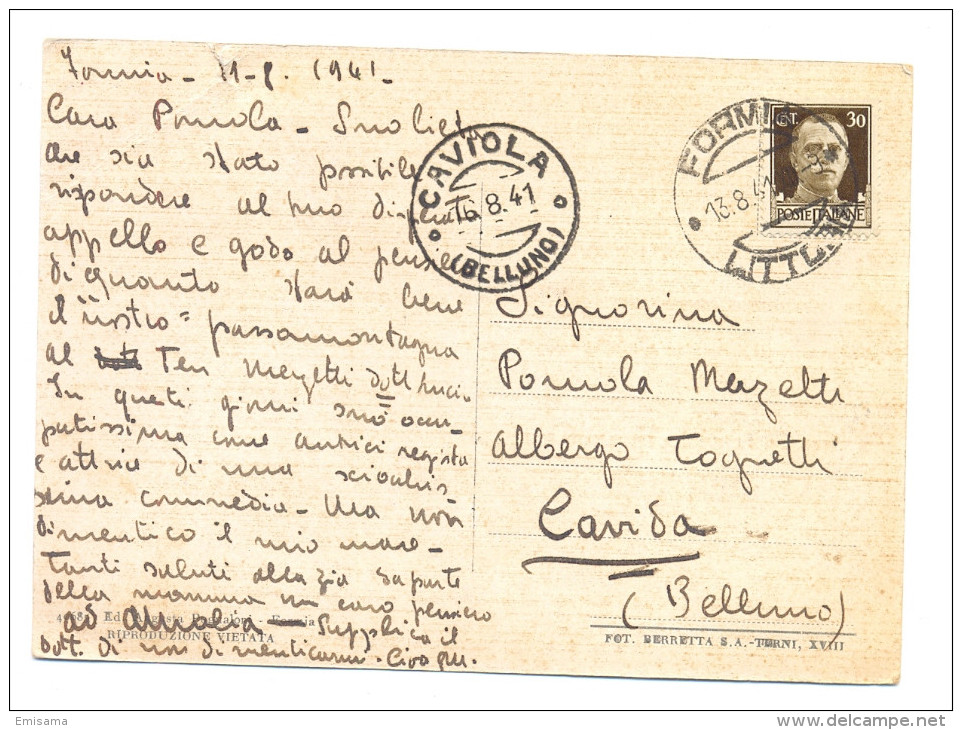 Formia - 11-8. 1941-
Cara Pomola - Sno lieta
che sia stato possibile
rispondere al tuo
appello e godo al pensiero
di quanto starà bene
il nostro = passamontagna
al Ten Mezetti dott
In questi giorni sno occu-
patissima come autrice regista
e attrice di una
commedia - Ma non
dimentico il mio mare -
Tanti saluti alla zia da parte
della mamma un caro pensiero
ad - Supplica il
dott. di non dimenticarmi -
RIPRODUZIONE VIETATA
CAVIOLA
16.8.41
(BELLUNO)
FORMIA
13.8.41
LITTORIA
CENT. 30
POSTE ITALIANE
Signorina
Pomola Mazetti
Albergo Tognetti
Caviola
(Belluno)
FOT. BERRETTA S.A.-TERNI, XVIII
Emisama
www.delcampe.net